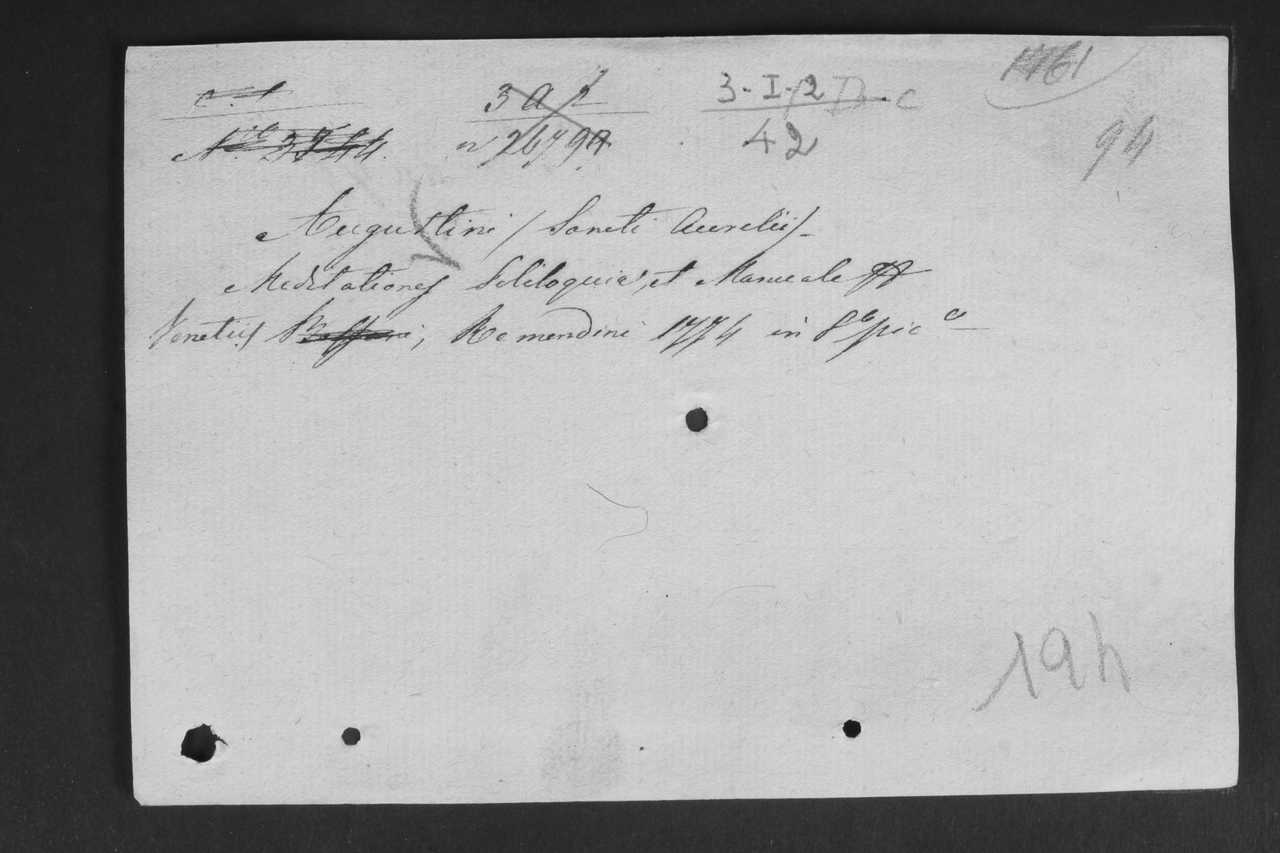 3 a 2 3-I-2 1761
n 26799 42 94
Augustini / Sancti Aurelii /
Meditationes Soliloquia, et Manuale
Venetiis Remondini 1774 in 8° pic°
194